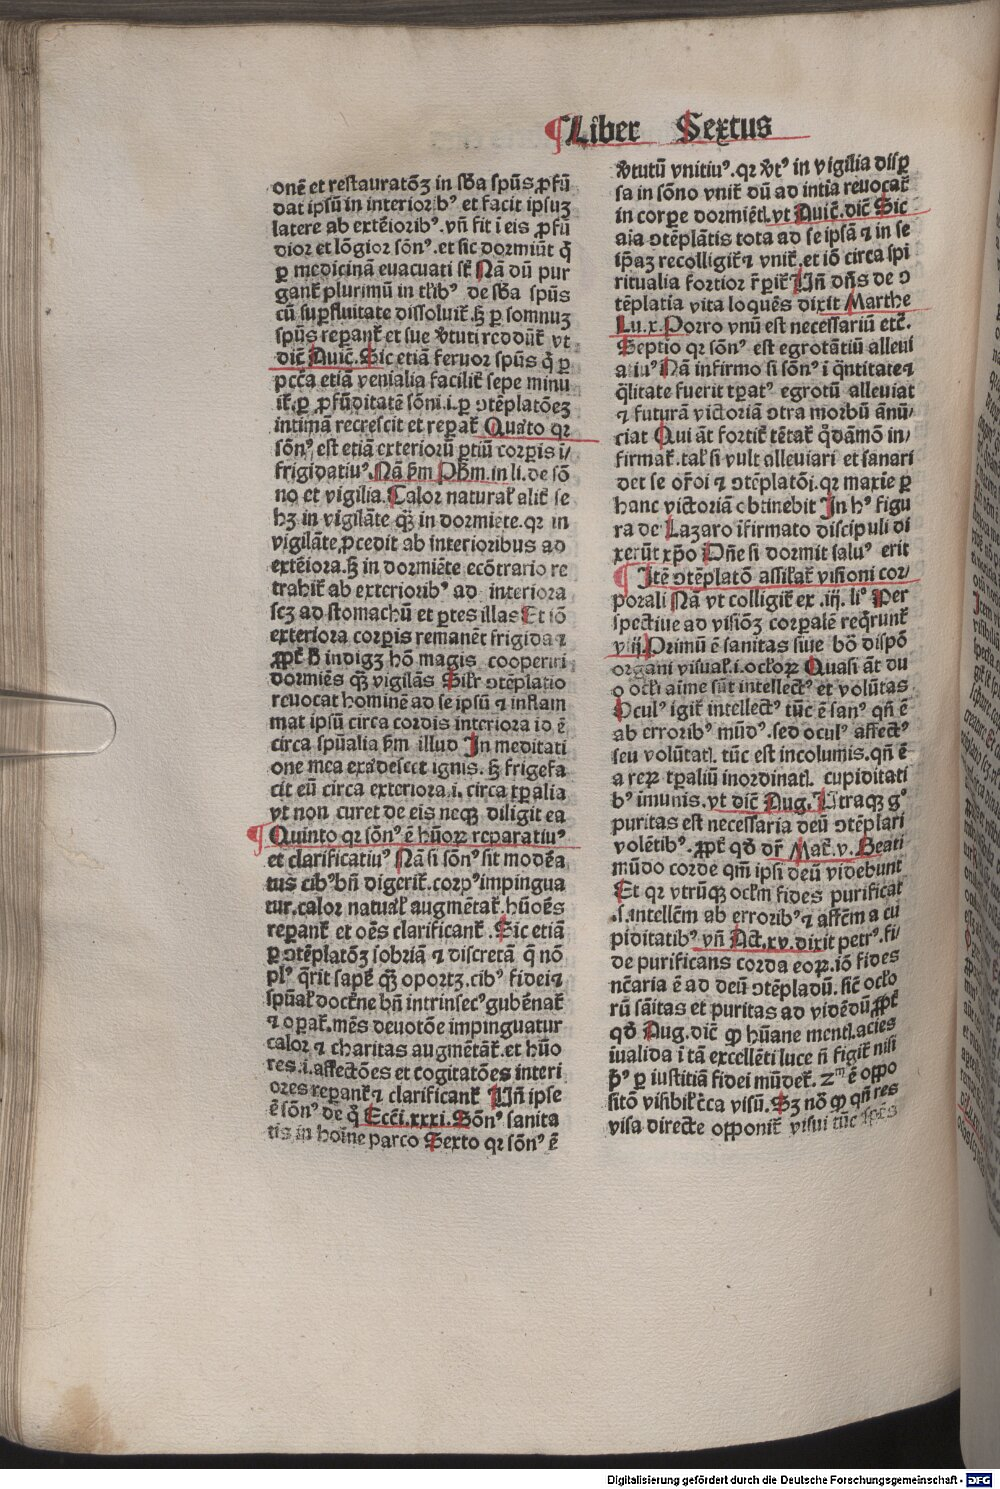 ¶Liber Sextus
onē et restauratōꝫ in sb̄a spūs ꝓfū
dat ipsū in interioribꝰ et facit ipsuꝫ
latere ab extērioribꝰ. vñ fit ī eis ꝓfū
dior et lōgior sōnꝰ. et sic dormiūt q̄
ꝑ medicinā euacuati sūt Nā dū pur
gant̄ plurimū in illibꝰ de sb̄a spūs
cū suꝑfluitate dissoluit̄. sꝫ ꝑ somnuꝫ
spūs reꝑant̄ et sue v̄tuti reddūt̄ vt
dic̄ Auic̄. Sic etiā feruor spūs q̄ ꝑ
pcc̄a etiā venialia facilit̄ sepe minu
it̄. ꝑ ꝓfūditatē sōni .i. ꝑ ↄtēplatōeꝫ
intimā recrescit et reꝑat̄ Quarto qꝛ
sōnꝰ est etiā exteriorū ꝑtiū corꝑis i/
frigidatiuꝰ. Nā s̄m Ph̄m. in li. de sō
no et vigilia. Calor natural̄ alit̄ se
hꝫ in vigilāte qꝫ̄ in dormiēte. qꝛ in
vigilāte ꝓcedit ab interioribus ad
extēiora. sꝫ in dormiēte ecōtrario re
trahit̄ ab exterioribꝰ ad interiora
scꝫ ad stomachū et ꝑtes illas Et iō
exteriora corꝑis remanēt frigida ⁊
ꝓpt̄ h̄ indigꝫ hō magis cooperiri
dormiēs qꝫ̄ vigilās Silr̄ ↄtēplatio
reuocat hominē ad se ipsū ⁊ inflam
mat ipsū circa cordis interiora iō ē
circa spūalia s̄m illud In meditati
one mea exardescet ignis. sꝫ frigefa
cit eū circa exteriora .i. circa tꝑalia
vt non curet de eis neqꝫ diligit ea
¶Quinto qꝛ sōnꝰ ē hūoꝝ reparatiuꝰ
et clarificatiuꝰ Nā si sōnꝰ sit modēa
tus cibꝰ bn̄ digerit̄. corpꝰ impingua
tur. calor natural̄ augmētat̄. hūoēs
reꝑant̄ et oēs clarificant̄. Sic etiā
ꝑ ↄtēplatōꝫ sobriā ⁊ discretā q̄ nō
plꝰ q̄rit sapē qꝫ̄ oportꝫ. cibꝰ fidei ⁊
spūal̄ doctr̄ne bn̄ intrinsecꝰ gubēnat̄
⁊ oꝑat̄. mēs deuotōe impinguatur
calor ⁊ charitas augmētat̄. et hūo
res .i. affectōes et cogitatōes interi
ores reꝑant̄ ⁊ clarificant̄ Un̄ ipse
ē sōnꝰ de q̄ Ecci. xxxi. Sōnꝰ sanita
tis in hoīne parco Sexto qꝛ sōnꝰ ē
v̄tutū vnitiuꝰ. qꝛ v̄tꝰ in vigilia disꝑ
sa in sōno vnit̄ dū ad intīa reuocat̄
in corpe dormiētꝭ. vt Auic̄. dic̄ Sic
aīa ↄtēplātis tota ad se ipsā ⁊ in se
ip̄aꝫ recolligit̄ ⁊ vnit̄. et iō circa spi
ritualia fortior r̄ꝑit̄ Un̄ dn̄s de ↄ
tēplatia vita loquēs dixit Marthe
Lu. x. Porro vnū est necessariū etc̄.
Septio qꝛ sōnꝰ est egrotātiū alleui
atiuꝰ Nā infirmo si sōnꝰ ī q̄ntitate ⁊
q̄litate fuerit tꝑatꝰ egrotū alleuiat
⁊ futurā victoriā ↄtra morbū ānū/
ciat Qui āt fortit̄ tētat̄ q̄dāmō in/
firmat̄. tal̄ si vult alleuiari et sanari
det se or̄oi ⁊ ↄtēplatōi. qꝛ maxīe ꝑ
hanc victoriā obtinebit In hꝰ figu
ra de Lazaro īfirmato discipuli di
xerūt xp̄o Dn̄e si dormit saluꝰ erit
¶Itē ↄtēplatō assil̄at̄ visioni cor/
porali Nā vt colligit̄ ex .iij. liº Per
spectiue ad visiōꝫ corꝑalē reqͥrunt̄
viij. Primū ē sanitas siue bō dispō
organi visual̄ .i. ocl̄oꝝ Quasi āt du
o ocl̄i aīme sūt intellectꝰ et volūtas
Oculꝰ igit̄ intellectꝰ tūc ē sanꝰ qn̄ ē
ab erroribꝰ mūdꝰ. sed oculꝰ affectꝰ
seu volūtatꝭ. tūc est incolumis. qn̄ ē
a reꝝ tꝑaliū inordinatꝭ. cupiditati
bꝰ īmunis. vt dic̄ Aug. Utraqꝫ gº
puritas est necessaria deū ↄtēplari
volētibꝰ. ꝓpt̄ qd̄ dr̄ Mat̄. v. Beati
mūdo corde qm̄ ipsi deū videbunt
Et qꝛ vtrūqꝫ ocl̄m fides purificat
.s. intellēm ab erroribꝰ ⁊ affēm a cu
piditatibꝰ vn̄ Act̄. xv. dixit petrꝰ. fi/
de purificans corda eoꝝ. iō fides
nc̄aria ē ad deū ↄtēpladū. sic̄ ocl̄o
rū sāitas et puritas ad vidēdū ꝓpt̄
qd̄ Aug. dic̄ ꝙ hūane mentꝭ. acies
īualida ī tā excellēti luce n̄ figit̄ nisi
pͥꝰ ꝑ iustitiā fidei mūdet̄. 2ᵐ ē oppo
sitō visibil̄ c̄ca visū. Sꝫ nō ꝙ qn̄ res
visa directe opponit̄ visui tūc spēs
Digitalisierung gefördert durch die Deutsche Forschungsgemeinschaft - DFG